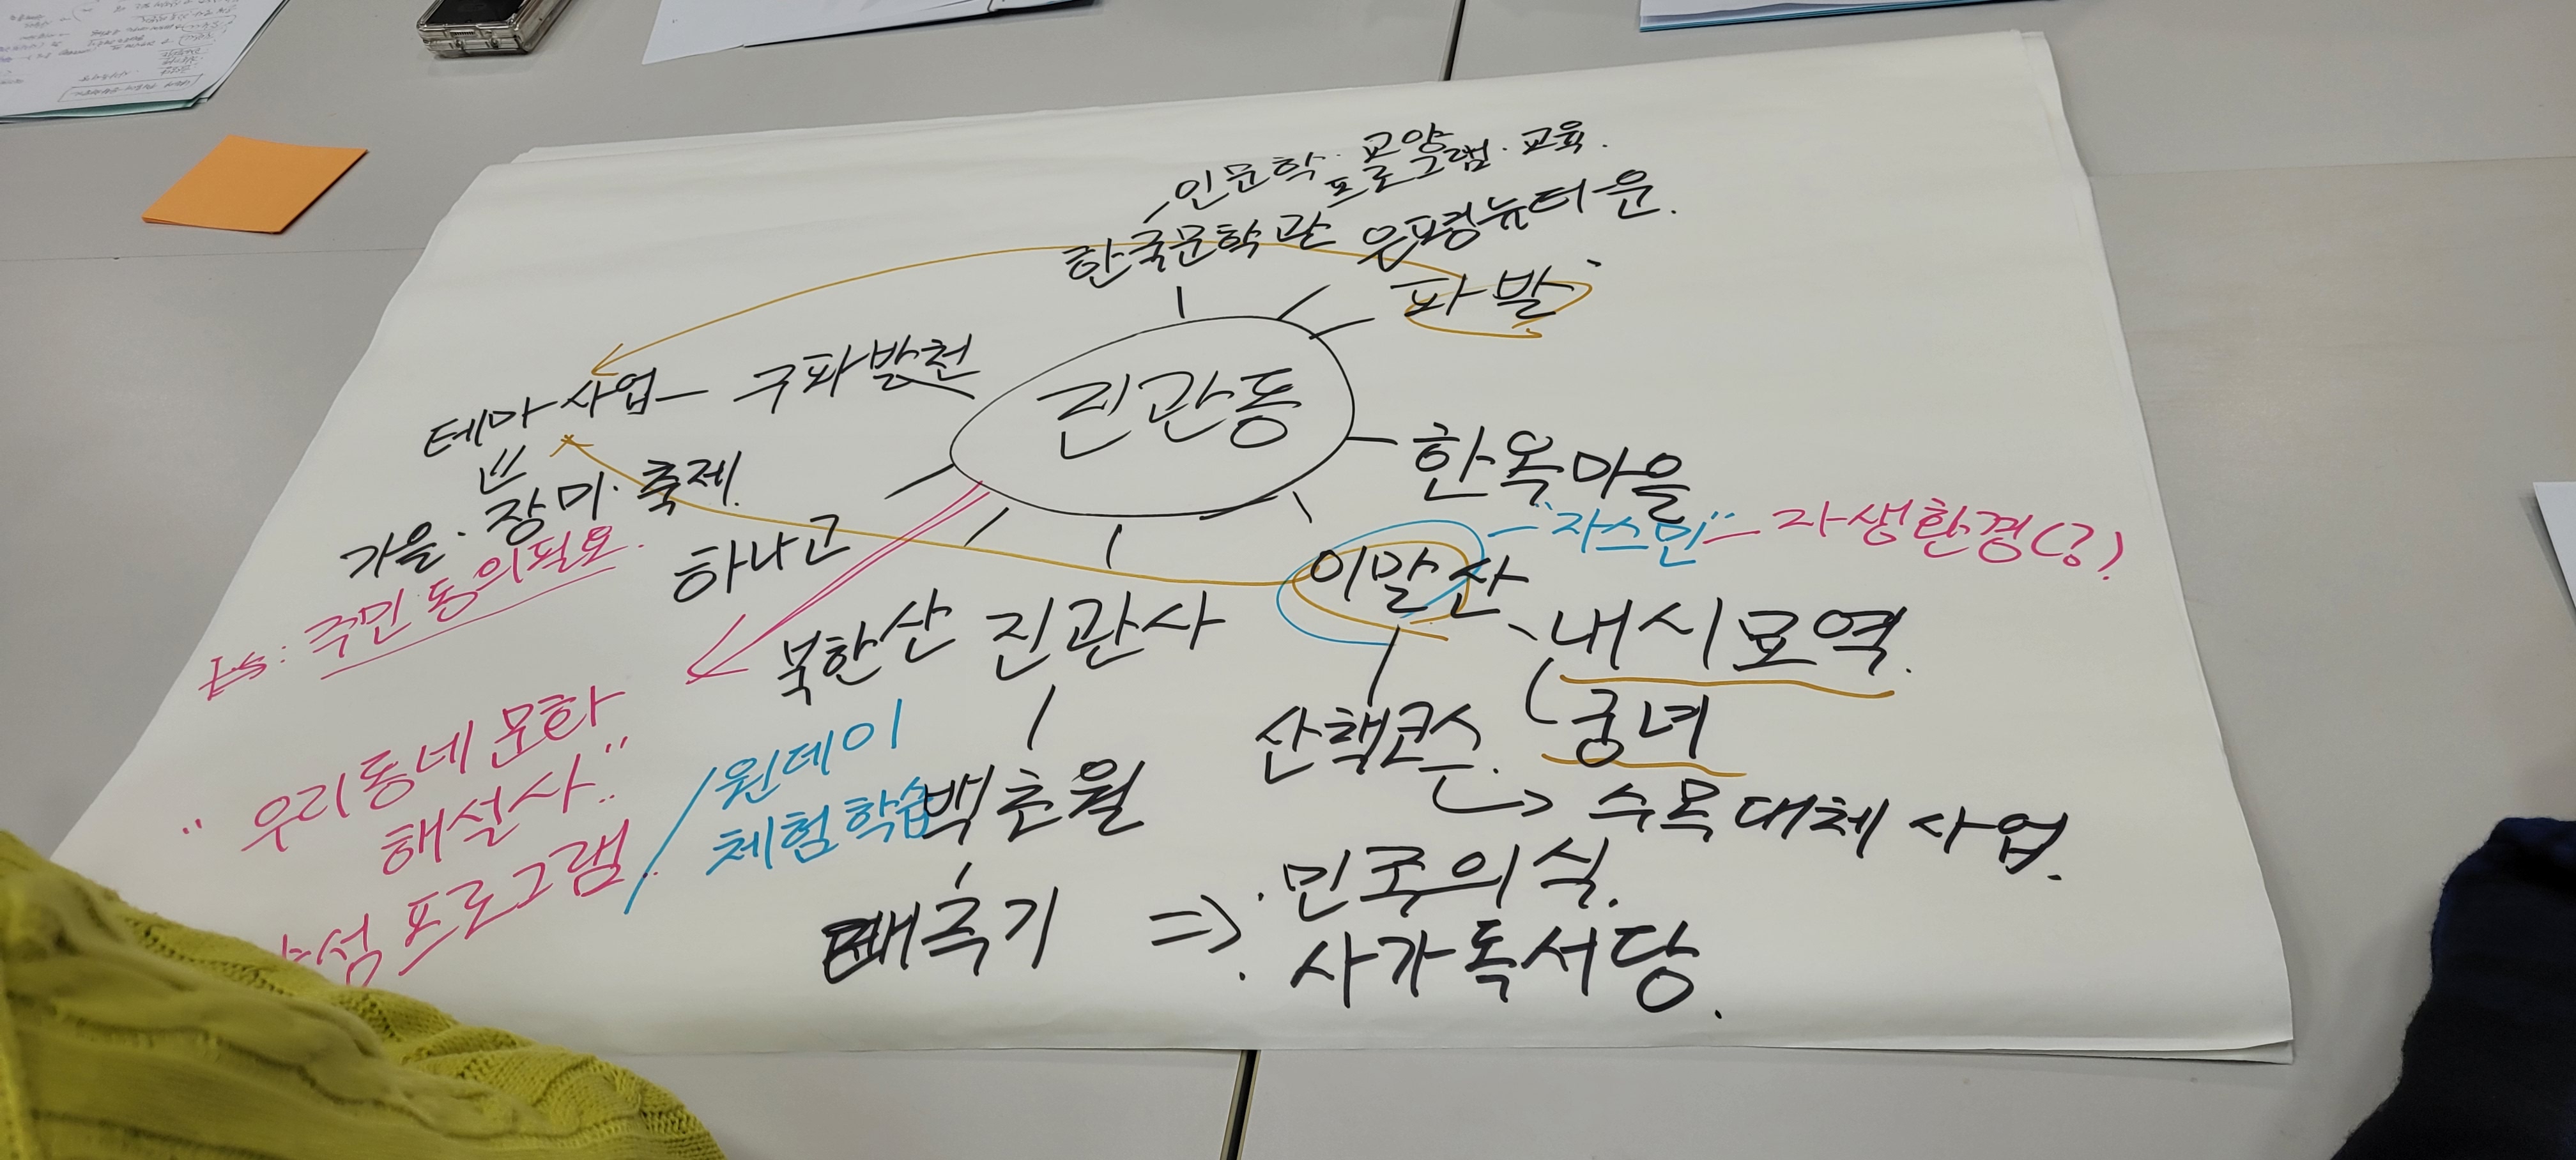 인문학· 교양
프로그램· 교육.
한국문학관
은평뉴타운.
파발
테마사업 구파발천
진관동
한옥마을
가을· 장미· 축제.
주민동의필요.
하나고
북한산 진관사
이말산
"자스민" 자생환경(?)
내시묘역.
궁녀
산책코스.
수목대체 사업.
"우리동네 문화
해설사"
프로그램.
원데이
체험학습
백초월
민족의식.
사가독서당.